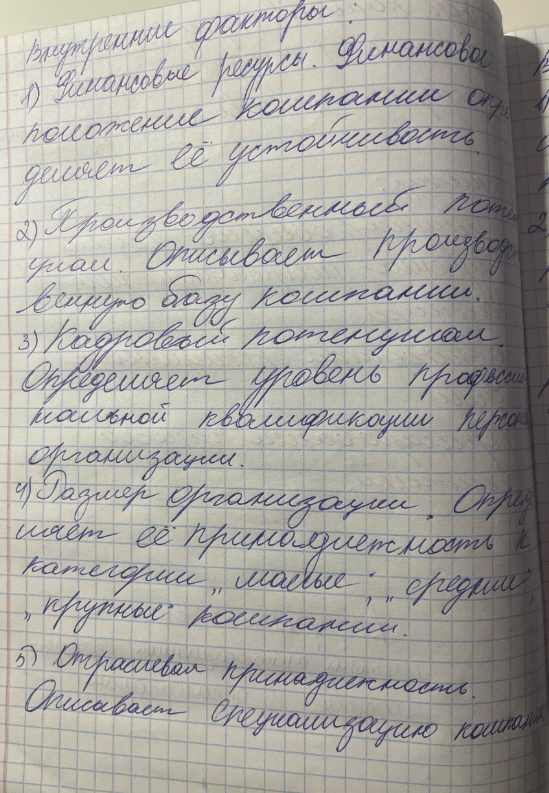 Внутренние факторы:
1) Финансовые ресурсы. Финансовое
положение компании опре
деляет её устойчивость.
2) Производственный потен
циал. Описывает производст
венную базу компании.
3) Кадровый потенциал.
Определяет уровень профессио
нальной квалификации персон
организации.
4) Размер организации. Опреде
ляет её принадлежность к
категории „малые“, „средние“,
„крупные“ компании.
5) Отраслевая принадлежность.
Описывает специализацию компании.